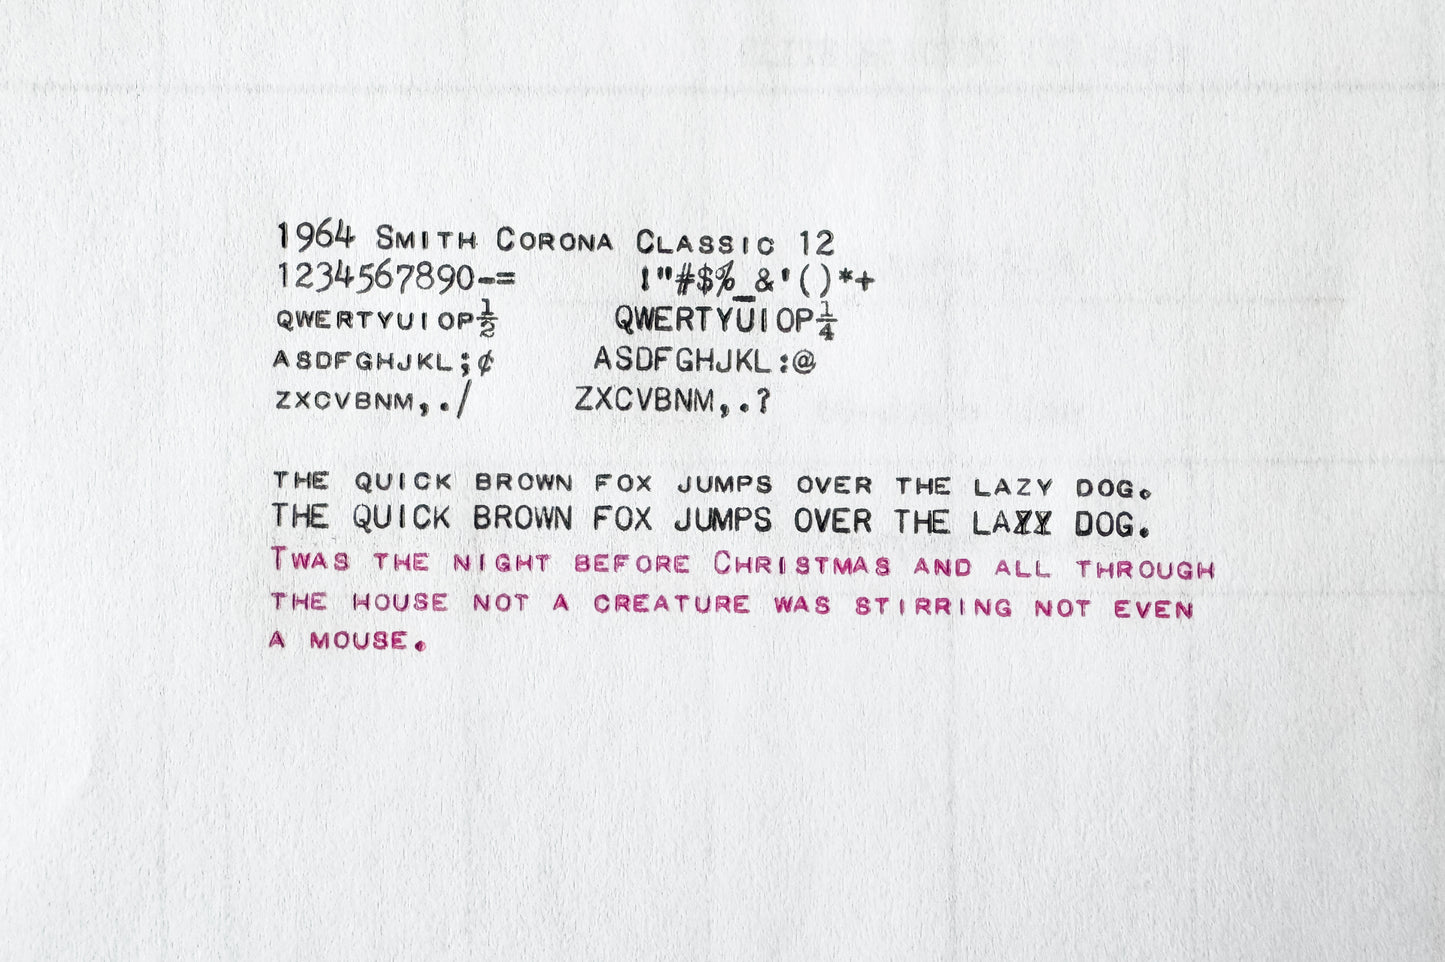 1964 Smith Corona Classic 12
1234567890-= !"#$%_&'()*+
qwertyuiop½ QWERTYUIOP¼
asdfghjkl;¢ ASDFGHJKL:@
zxcvbnm,./ ZXCVBNM,.?
the quick brown fox jumps over the lazy dog.
THE QUICK BROWN FOX JUMPS OVER THE LAZY DOG.
Twas the night before Christmas and all through
the house not a creature was stirring not even
a mouse.